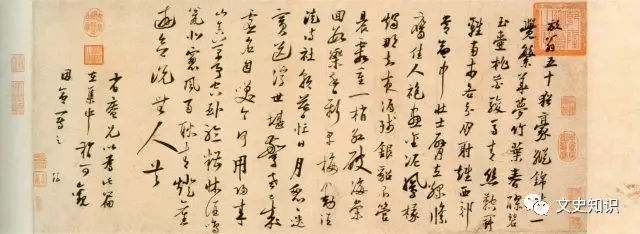 放翁五十猶豪縱錦城一
覺繁華夢竹葉春醪碧
玉壺桃花駿馬青絲鞚鬥
雞南市各分朋射雉西郊
常命中壯士臂立綠絛
鷹佳人袍畫金泥鳳椽
燭那知夜漏殘銀貂不管
晨霜重一梢紅破海棠
回數蕊香新早梅動酒
徒詩社朝暮忙日月匆匆迭
賓送浮世堪驚老已成
虛名自笑今何用歸來
山舍萬事空臥聽糟床酒鳴
甕北窗風雨耿青燈舊
遊欲說無人共
省庵兄以為此篇
在集中稍可觀
因命寫之 游
文史知识